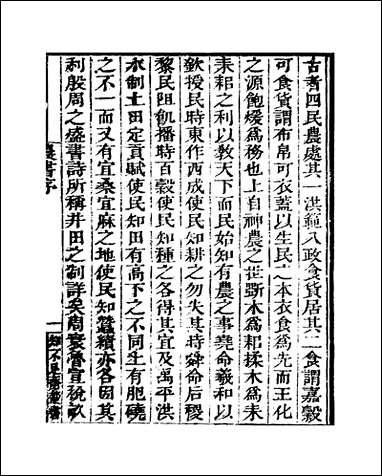 古者四民農處其一洪範八政食貨居其二食謂嘉穀
可食貨謂布帛可衣蓋以生民之本衣食為先而王化
之源飽煖為務也上自神農之世斲木為耜揉木為耒
耒耜之利以教天下而民始知有農之事堯命羲和以
欽授民時東作西成使民知耕之勿失其時舜命后稷
黎民阻飢播時百穀使民知種之各得其宜及禹平洪
水制土田定貢賦使民知田有高下之不同土有肥磽
之不一而又有宜桑宜麻之地使民知蠶績亦各因其
利殷周之盛書詩所稱井田之制詳矣周衰魯宣稅畝
農書序
一
知不足齋叢書